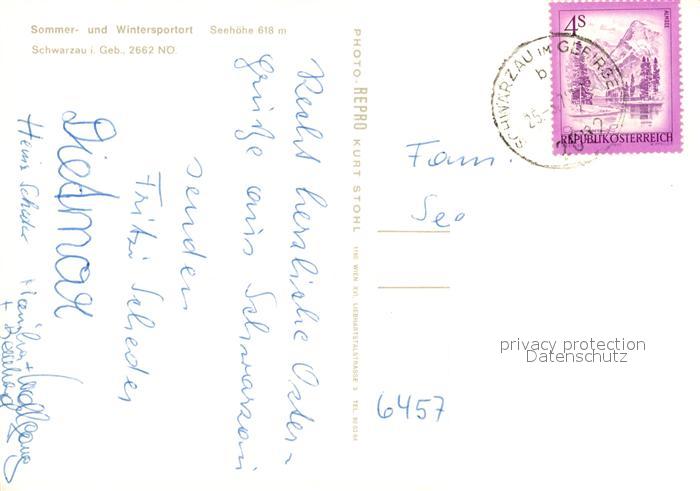 Sommer- und Wintersportort Seehöhe 618 m
Schwarzau i. Geb., 2662 NÖ.
Recht herzliche Oster-
grüße aus Schwarzau
senden
Fritzi Scheder
Dietmar
PHOTO-REPRO KURT STOHL
1160 WIEN XVI, LIEBHARTSTALSTRASSE 3 TEL.
4S
ALMSEE
REPUBLIK ÖSTERREICH
SCHWARZAU IM GEBIRGE
b
2662
Fam.
Seo
6457
privacy protection
Datenschutz